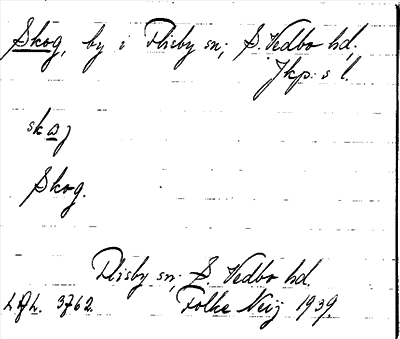 Skog, by i Flisby sn; S. Vedbo hd,
Jkp: s l.
skog
Skog.
Flisby sn; S. Vedbo hd.
3762. Folke Neij 1939.